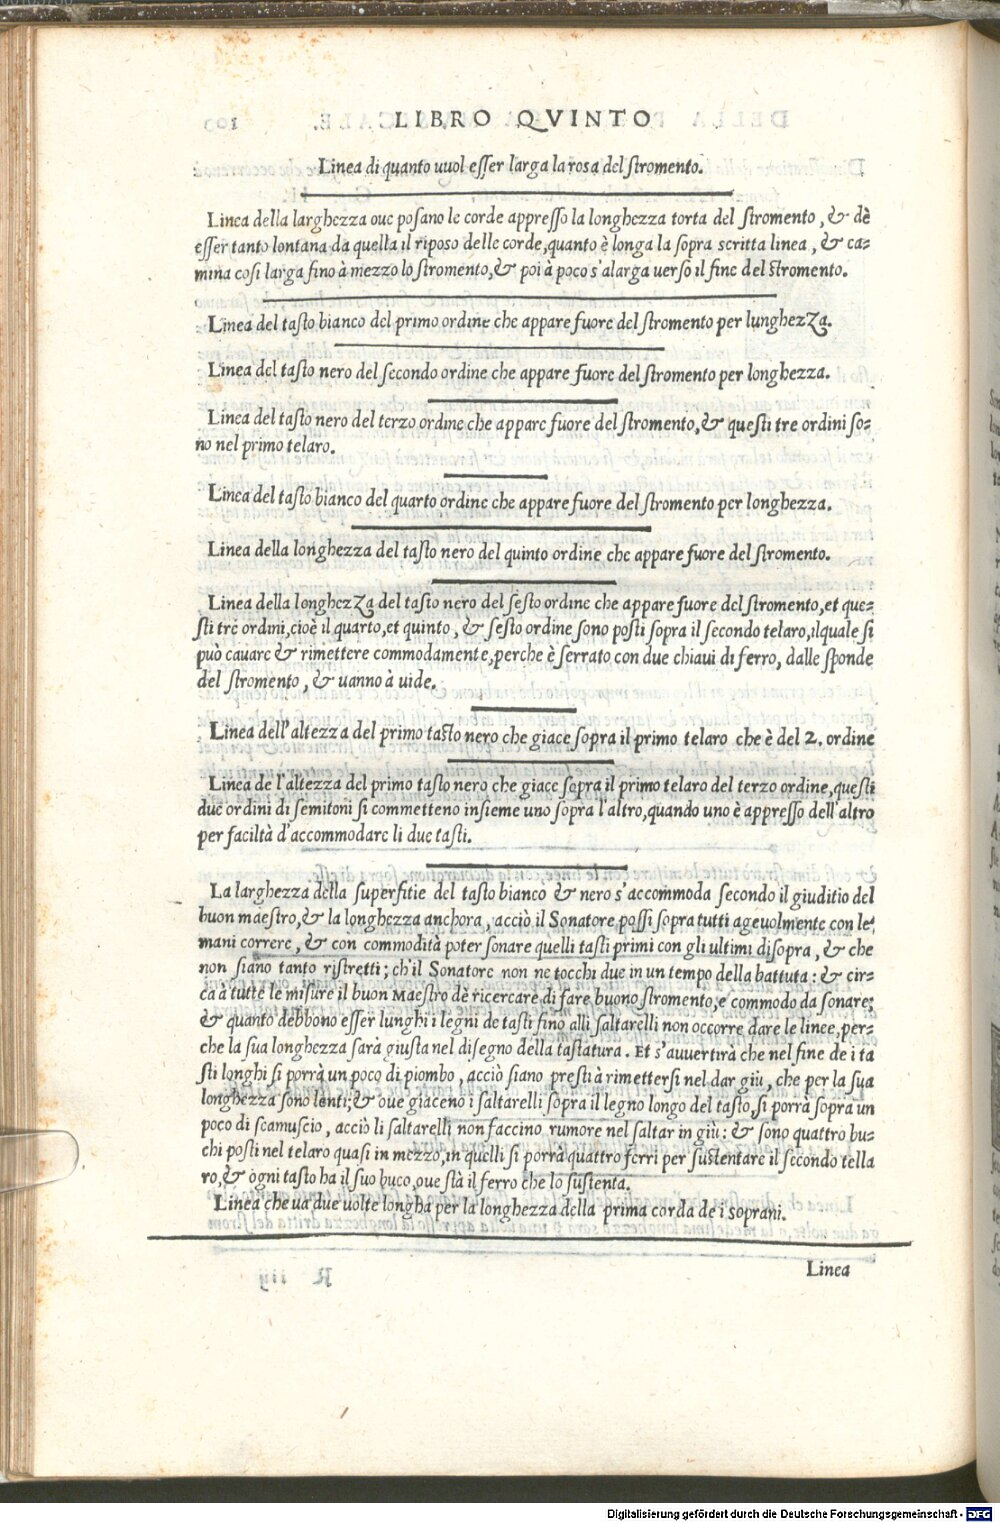 LIBRO QVINTO
Linea di quanto uuol esser larga la rosa del stromento.
Linea della larghezza oue posano le corde appresso la longhezza torta del stromento, & dè
esser tanto lontana da quella il riposo delle corde, quanto è longa la sopra scritta linea, & ca=
mina cosi larga fino à mezzo lo stromento, & poi à poco s'alarga uerso il fine del stromento.
Linea del tasto bianco del primo ordine che appare fuore del stromento per lunghezza.
Linea del tasto nero del secondo ordine che appare fuore del stromento per longhezza.
Linea del tasto nero del terzo ordine che appare fuore del stromento, & questi tre ordini so=
no nel primo telaro.
Linea del tasto bianco del quarto ordine che appare fuore del stromento per longhezza.
Linea della longhezza del tasto nero del quinto ordine che appare fuore del stromento.
Linea della longhezza del tasto nero del sesto ordine che appare fuore del stromento, et que=
sti tre ordini, cioè il quarto, et quinto, & sesto ordine sono posti sopra il secondo telaro, ilquale si
può cauare & rimettere commodamente, perche è serrato con due chiaui di ferro, dalle sponde
del stromento, & uanno à uide.
Linea dell'altezza del primo tasto nero che giace sopra il primo telaro che è del 2. ordine
Linea de l'altezza del primo tasto nero che giace sopra il primo telaro del terzo ordine, questi
due ordini di semitoni si commetteno insieme uno sopra l'altro, quando uno è appresso dell'altro
per facilità d'accommodare li due tasti.
La larghezza della superfitie del tasto bianco & nero s'accommoda secondo il giuditio del
buon maestro, & la longhezza anchora, acciò il Sonatore possi sopra tutti ageuolmente con le
mani correre, & con commodità poter sonare quelli tasti primi con gli ultimi disopra, & che
non siano tanto ristretti; ch'il Sonatore non ne tocchi due in un tempo della battuta: & cir=
ca à tutte le misure il buon Maestro dè ricercare di fare buono stromento, e commodo da sonare;
& quanto debbono esser lunghi i legni de tasti fino alli saltarelli non occorre dare le linee, per=
che la sua longhezza sarà giusta nel disegno della tastatura. Et s'auuertirà che nel fine de i ta
sti longhi si porrà un poco di piombo, acciò siano presti à rimettersi nel dar giù, che per la sua
longhezza sono lenti; & oue giaceno i saltarelli sopra il legno longo del tasto, si porrà sopra un
poco di scamuscio, acciò li saltarelli non faccino rumore nel saltar in giù: & sono quattro bu=
chi posti nel telaro quasi in mezzo, in quelli si porrà quattro ferri per sustentare il secondo tella
ro, & ogni tasto ha il suo buco, oue stà il ferro che lo sustenta.
Linea che ua due uolte longha per la longhezza della prima corda de i soprani.
Linea
Digitalisierung gefördert durch die Deutsche Forschungsgemeinschaft - DFG